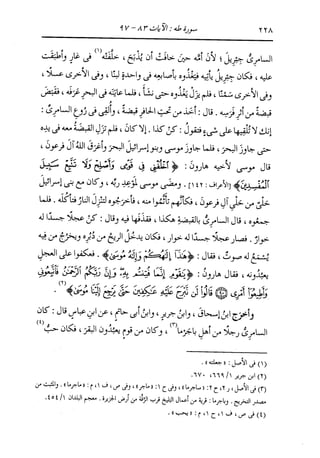 ٢٢٨
سورة طه: الآيات ٨٣ - ٩٧
السامرىُّ جبريلَ؛ لأن أمَّه حين خافت أن يُذبَحَ، خلَّفته(١) فى غارٍ وأطبَقت
عليه، فكان جبريلُ يأتيه فيَغْذُوه بأصابعِه فى واحدةٍ لبنًا، وفى الأخرى عسلًا،
وفى الأخرى سَمْنًا، فلم يزلْ يَغذُوه حتى نشَأ، فلما عايَنه فى البحرِ عرَفه، فقبَض
قبضةً من أثرِ فرسِه. قال: أخَذ من تحتِ الحافرِ قبضةً، وأُلقِى فى رُوعِ السامرىِّ:
إنك لا تُلقيها على شىءٍ فتقولُ: كن كذا. إلا كان، فلم تزلِ القبضةُ معه فى يدِه
حتى جاوَز البحرَ، فلما جاوَز موسى وبنو إسرائيلَ البحرَ وأغرَق اللهُ آلَ فرعونَ،
قال موسى لأخيه هارونَ: ﴿ٱخۡلُفۡنِي فِي قَوۡمِي وَأَصۡلِحۡ وَلَا تَتَّبِعۡ سَبِيلَ
ٱلۡمُفۡسِدِينَ﴾ [الأعراف: ١٤٢]. ومضَى موسى لموعدِ ربِّه، وكان مع بنى إسرائيلَ
حَلْىٌ من حُلىِّ آلِ فرعونَ، فكأنهم تأثَّموا منه، فأخرَجوه لتنزلَ النارُ فتأكلَه. فلما
جمَعوه، قال السامرىُّ بالقبضةِ هكذا، فقذَفها فيه وقال: كن عجلًا جسدًا له
خوارٌ. فصار عجلًا جسدًا له خوارٌ، فكان يدخُلُ الريحُ من دُبُرِه ويخرجُ من فيه
يُسمَعُ له صوتٌ، فقال: ﴿هَٰذَآ إِلَٰهُكُمۡ وَإِلَٰهُ مُوسَىٰ﴾. فعكَفوا على العجلِ
يعبُدونه، فقال هارونُ: ﴿يَٰقَوۡمِ إِنَّمَا فُتِنتُم بِهِۦۖ وَإِنَّ رَبَّكُمُ ٱلرَّحۡمَٰنُ فَٱتَّبِعُونِي
وَأَطِيعُوٓاْ أَمۡرِي ۝ قَالُواْ لَن نَّبۡرَحَ عَلَيۡهِ عَٰكِفِينَ حَتَّىٰ يَرۡجِعَ إِلَيۡنَا مُوسَىٰ﴾(٢).
وأخرَج ابنُ إسحاقَ، وابنُ جريرٍ، وابنُ أبى حاتمٍ، عن ابنِ عباسٍ قال: كان
السامرىُّ رجلًا من أهلِ باجَرْما(٣)، وكان من قومٍ يعبُدون البقرَ، فكان حبُّ(٤)
(١) فى الأصل: «جعلته».
(٢) ابن جرير ١/ ٦٦٩، ٦٧٠.
(٣) فى الأصل، ر ٢، ح ٢: «ساجرما»، وفى ح ١: «ماجر»، وفى ص، ف ١، م: «ماجرما». والمثبت من
مصدر التخريج. وباجرما: قرية من أعمال البليخ قرب الرقة من أرض الجزيرة. معجم البلدان ١/ ٤٥٤.
(٤) فى ص، ف ١، ح ١، م: «يحب».